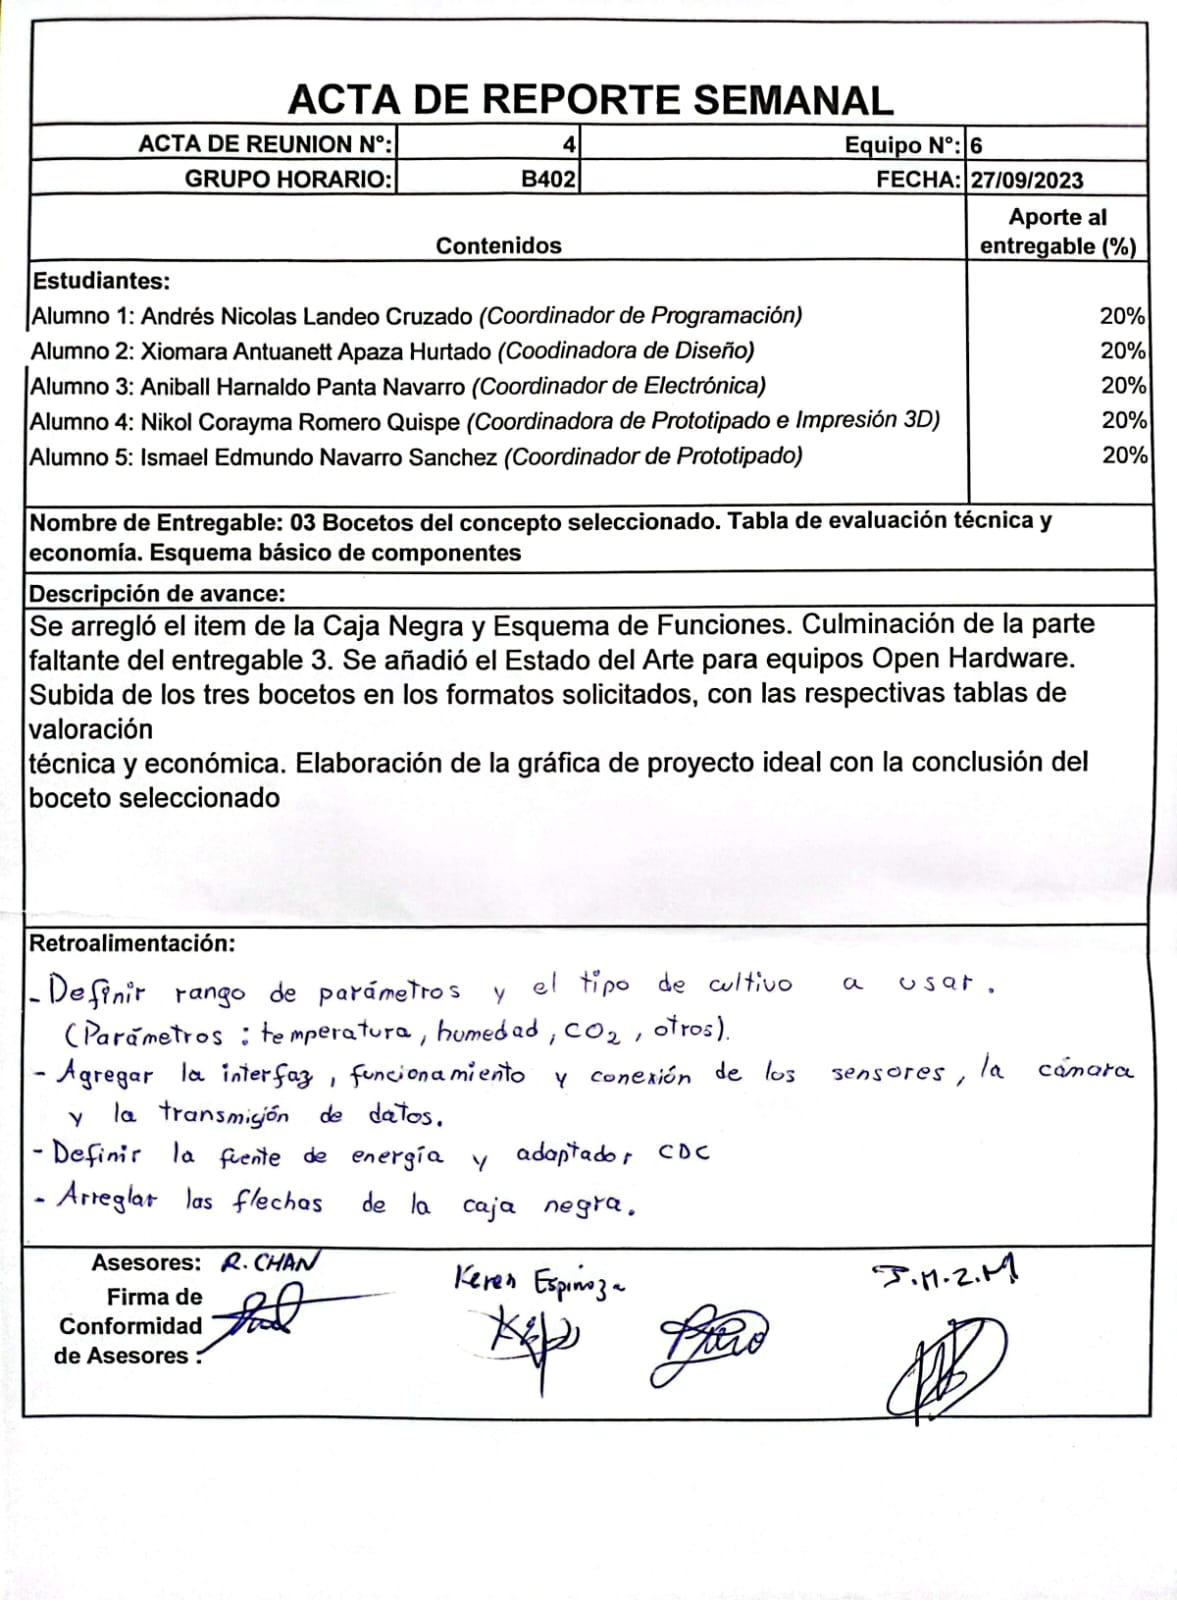 ACTA DE REPORTE SEMANAL
ACTA DE REUNION Nº: 4 Equipo Nº: 6
GRUPO HORARIO: B402 FECHA: 27/09/2023
Contenidos Aporte al entregable (%)
Estudiantes:
Alumno 1: Andrés Nicolas Landeo Cruzado (Coordinador de Programación) 20%
Alumno 2: Xiomara Antuanett Apaza Hurtado (Coodinadora de Diseño) 20%
Alumno 3: Aniball Harnaldo Panta Navarro (Coordinador de Electrónica) 20%
Alumno 4: Nikol Corayma Romero Quispe (Coordinadora de Prototipado e Impresión 3D) 20%
Alumno 5: Ismael Edmundo Navarro Sanchez (Coordinador de Prototipado) 20%
Nombre de Entregable: 03 Bocetos del concepto seleccionado. Tabla de evaluación técnica y
economía. Esquema básico de componentes
Descripción de avance:
Se arregló el item de la Caja Negra y Esquema de Funciones. Culminación de la parte
faltante del entregable 3. Se añadió el Estado del Arte para equipos Open Hardware.
Subida de los tres bocetos en los formatos solicitados, con las respectivas tablas de
valoración
técnica y económica. Elaboración de la gráfica de proyecto ideal con la conclusión del
boceto seleccionado
Retroalimentación:
- Definir rango de parámetros y el tipo de cultivo a usar.
(Parámetros : temperatura, humedad, CO2, otros).
- Agregar la interfaz, funcionamiento y conexión de los sensores, la cámara
y la transmisión de datos.
- Definir la fuente de energía y adaptador CDC
- Arreglar las flechas de la caja negra.
Asesores: R. CHAN Keren Espinoza J.M.Z.M
Firma de
Conformidad
de Asesores :